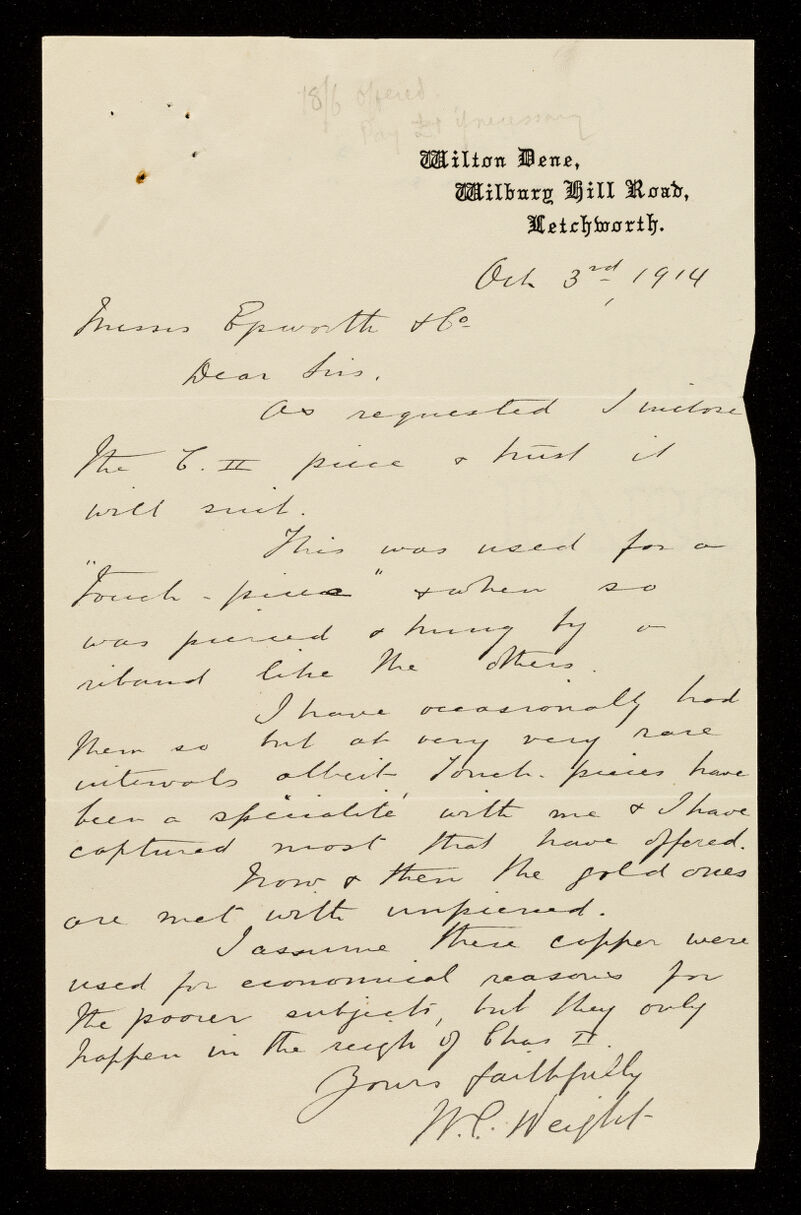 18/6 offered.
Pay £1 if necessary
Wilton Dene,
Wilbury Hill Road,
Letchworth.
Oct 3rd, 1914
Messrs Epworth & Co
Dear Sirs,
As requested I inclose
the C. II piece & trust it
will suit.
This was used for a
"Touch-piece" & when so
was pierced & hung by a
riband like the others.
I have occasionally had
them so but at very very rare
intervals albeit Touch-pieces have
been a spécialité with me & I have
captured most that have offered.
Now & then the gold ones
are met with unpierced.
I assume these copper were
used for economical reasons for
the poorer subjects, but they only
happen in the reign of Chas II.
Yours faithfully
W.C. Weight